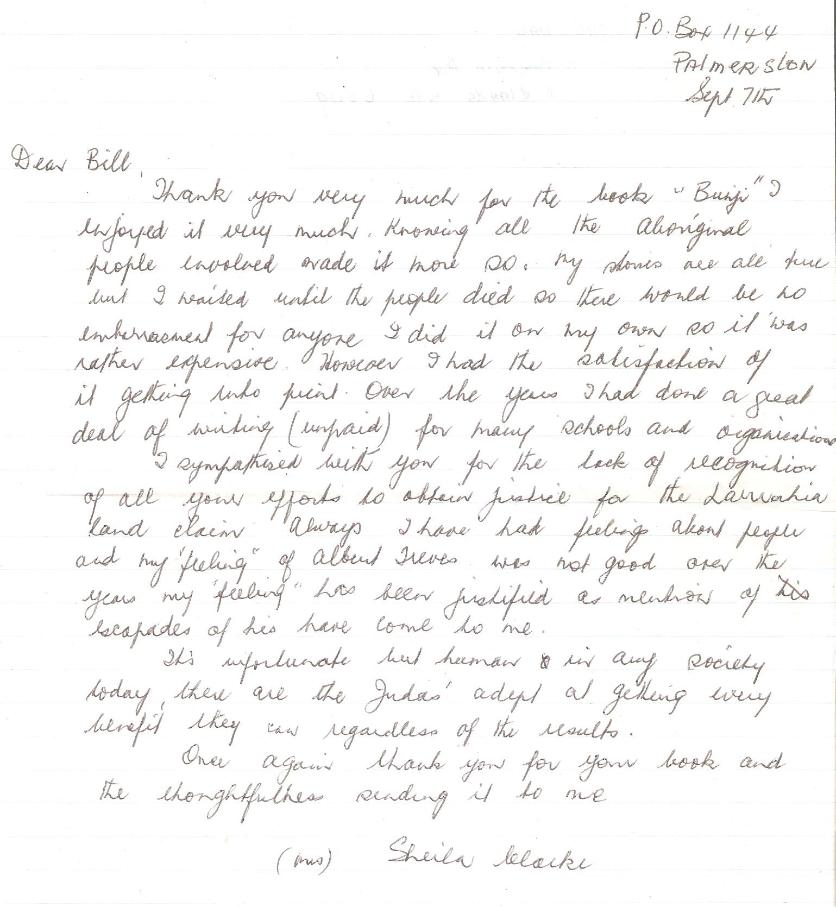 P.O. Box 1144
Palmerston
Sept 7th
Dear Bill,
Thank you very much for the book "Bunji" I
enjoyed it very much. Knowing all the Aboriginal
people involved made it more so. My stories are all true
but I waited until the people died so there would be no
embarrasment for anyone I did it on my own so it was
rather expensive. However I had the satisfaction of
it getting into print. Over the years I had done a great
deal of writing (unpaid) for many schools and organisations
I sympathised with you for the lack of recognition
of all your efforts to obtain justice for the Larrakia
land claim Always I have had feelings about people
and my "feeling" of Albert Treves was not good over the
years my "feeling" has been justified as mention of his
escapades of his have come to me.
It's unfortunate but human & in any society
today, there are the Judas' adept at getting every
benefit they can regardless of the results.
Once again thank you for your book and
the thoughtfulness sending it to me
(Mrs) Sheila Clarke